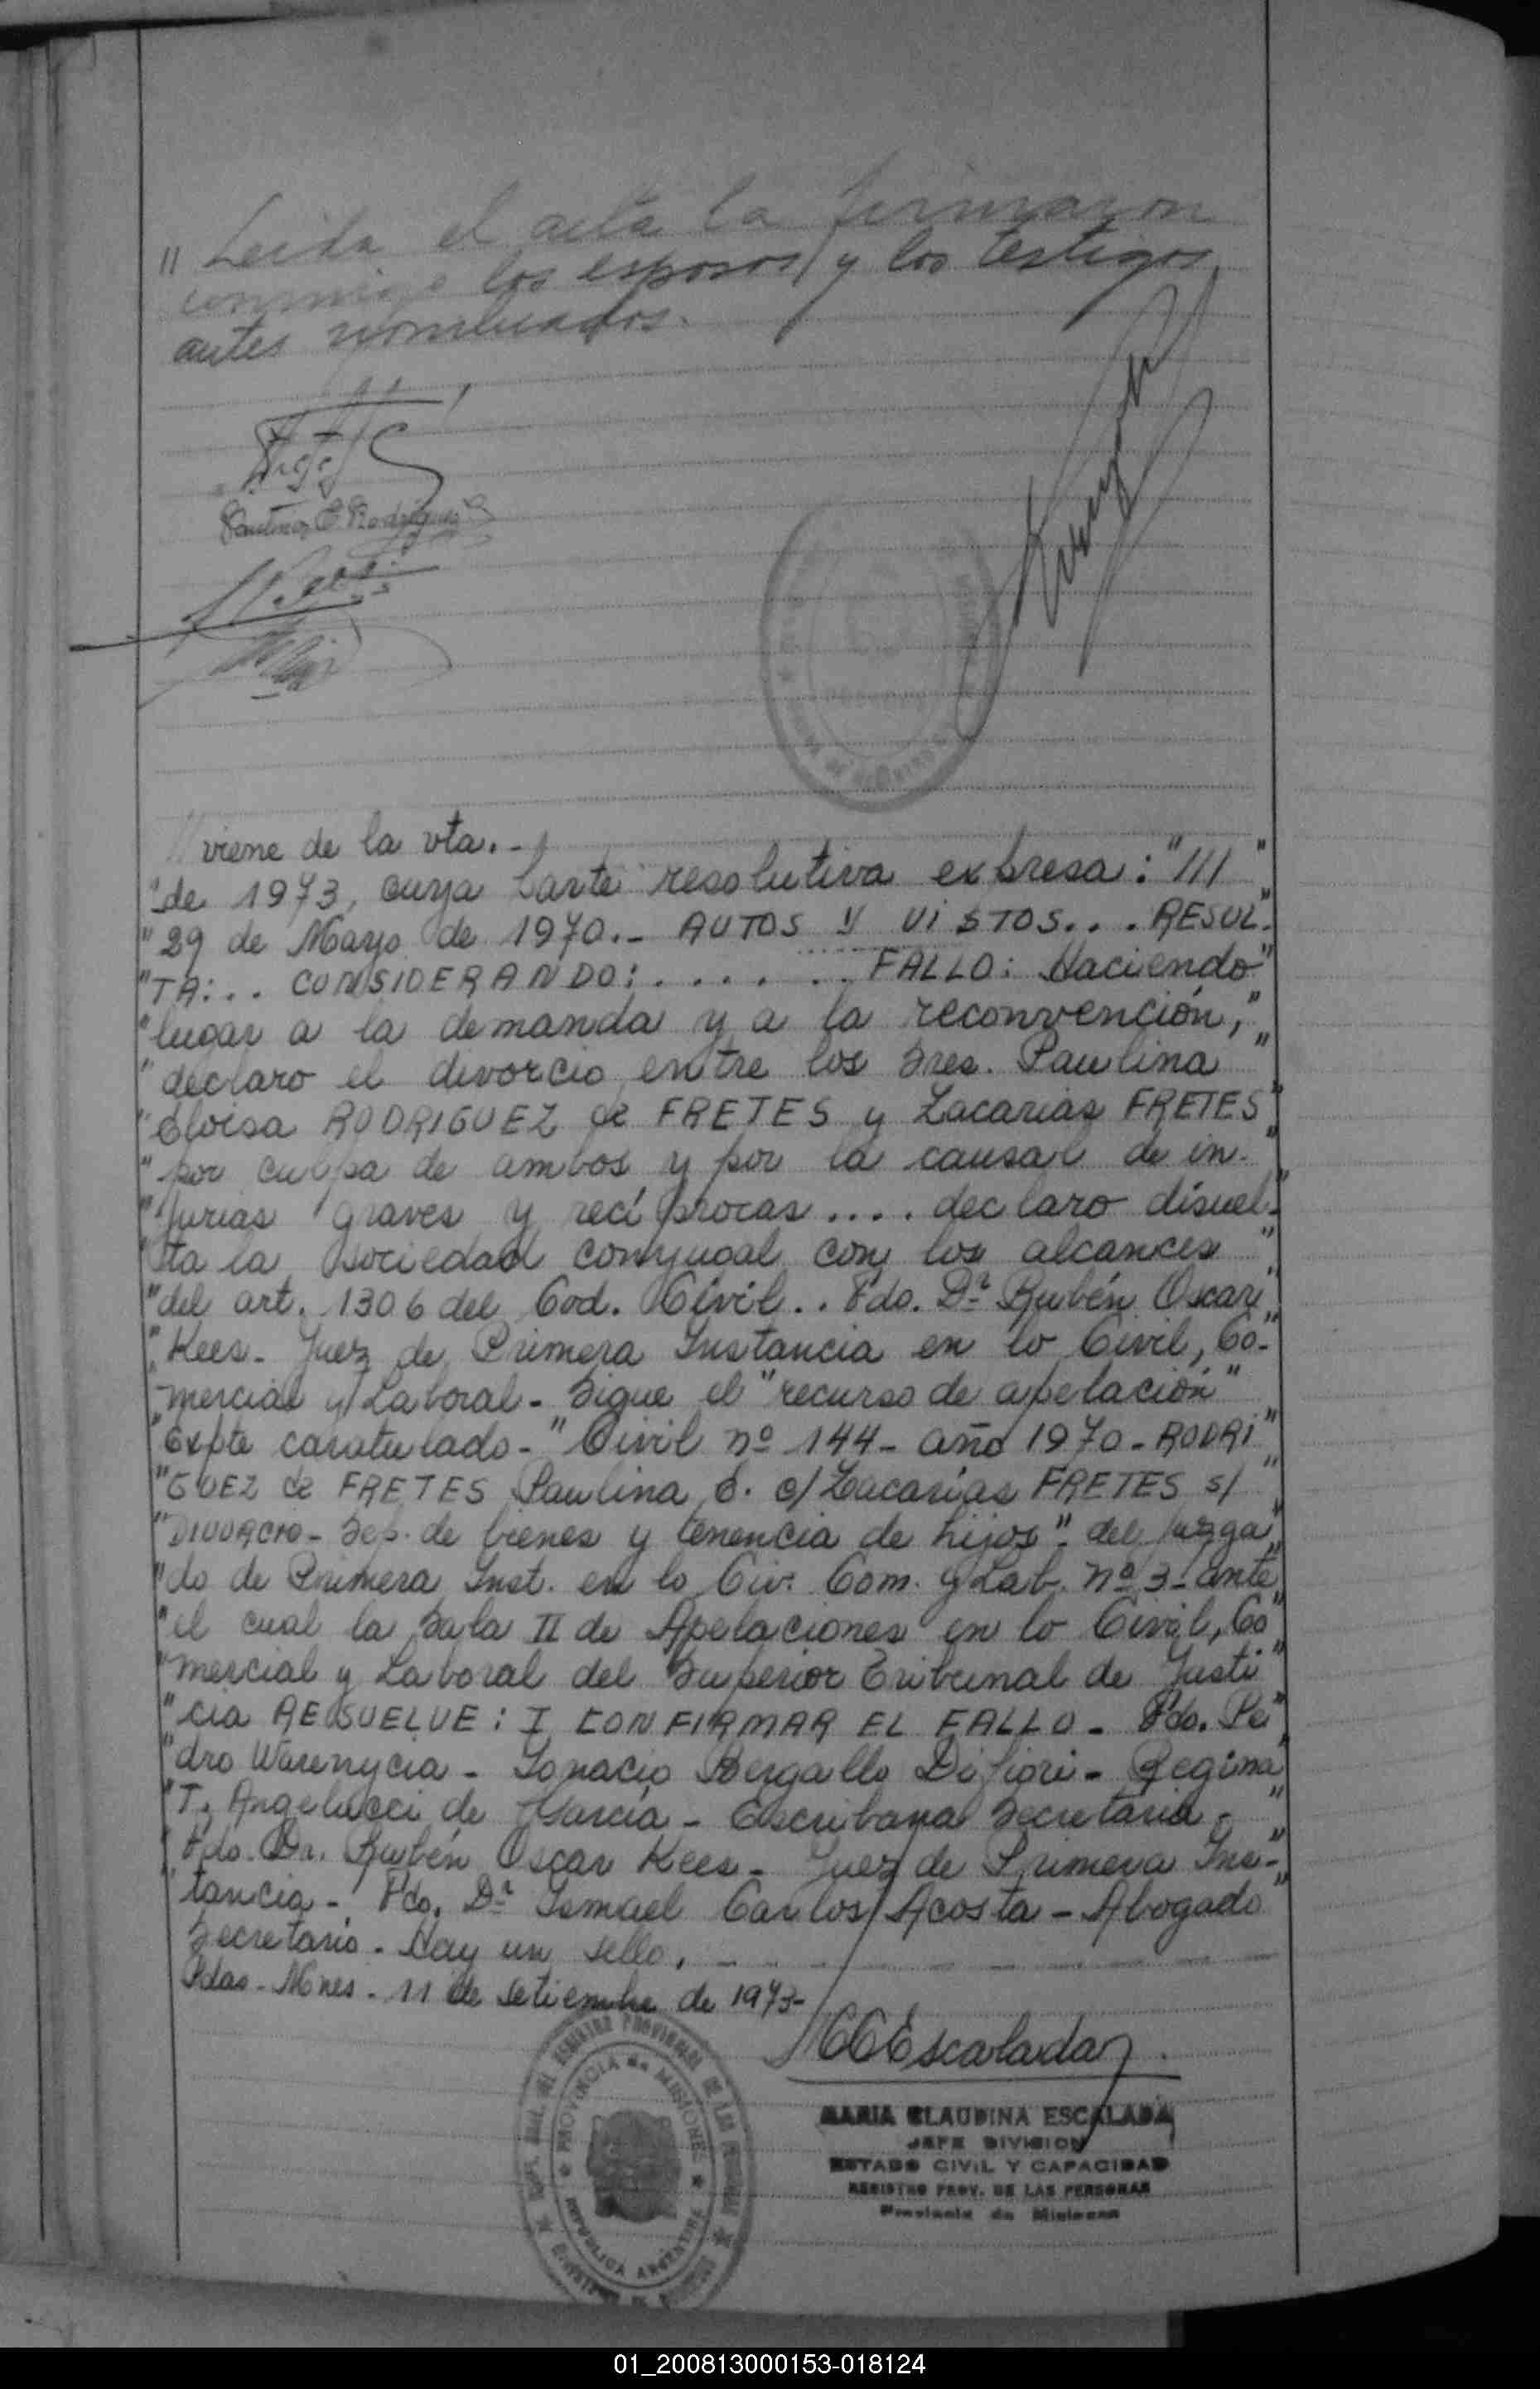 " Leida el acta la firmaron
conmigo los esposos y los testigos
antes nombrados.
Paulina E Rodriguez
viene de la vta.-
"de 1973, cuya parte resolutiva expresa: "///"
"29 de Mayo de 1970.- AUTOS Y VISTOS... RESUL-"
"TA:.. CONSIDERANDO: . . . . . . . FALLO: Haciendo"
"lugar a la demanda y a la reconvención,"
"declaro el divorcio entre los Sres. Paulina"
"Eloisa RODRIGUEZ de FRETES y Zacarias FRETES"
"por culpa de ambos y por la causal de in-"
"jurias graves y recíprocas .... declaro disuel-"
"ta la sociedad conyugal con los alcances"
"del art. 1306 del Cod. Civil.. Fdo. Dr Rubén Oscar"
"Kees- Juez de Primera Instancia en lo Civil, Co-"
"mercial y Laboral- Sigue el "recurso de apelación"
"Expte caratulado-" Civil nº 144- año 1970- RODRI"
"GUEZ de FRETES Paulina E. c/ Zacarías FRETES s/"
"DIVORCIO- Sep. de bienes y tenencia de hijos". del Juzga"
"do de Primera Inst. en lo Civ. Com. y Lab. nº 3- ante"
"el cual la Sala II de Apelaciones en lo Civil, Co"
"mercial y Laboral del Superior Tribunal de Justi"
"cia RESUELVE: I CONFIRMAR EL FALLO- Fdo. Pe"
"dro Warenycia- Ignacio Bergallo Difiori- Regina
"T. Angelucci de García- Escribana Secretaria-"
Fdo. Dr. Rubén Oscar Kees- Juez de Primera Ins-"
tancia- Fdo. Dr Ismael Carlos Acosta- Abogado"
Secretario. Hay un sello.
Pdas- Mnes- 11 de Setiembre de 1973-
MCEscalada
MARIA CLAUDINA ESCALADA
JEFE DIVISION
ESTADO CIVIL Y CAPACIDAD
REGISTRO PROV. DE LAS PERSONAS
Provincia de Misiones
PROVINCIA de MISIONES
REPUBLICA ARGENTINA
01_200813000153-018124